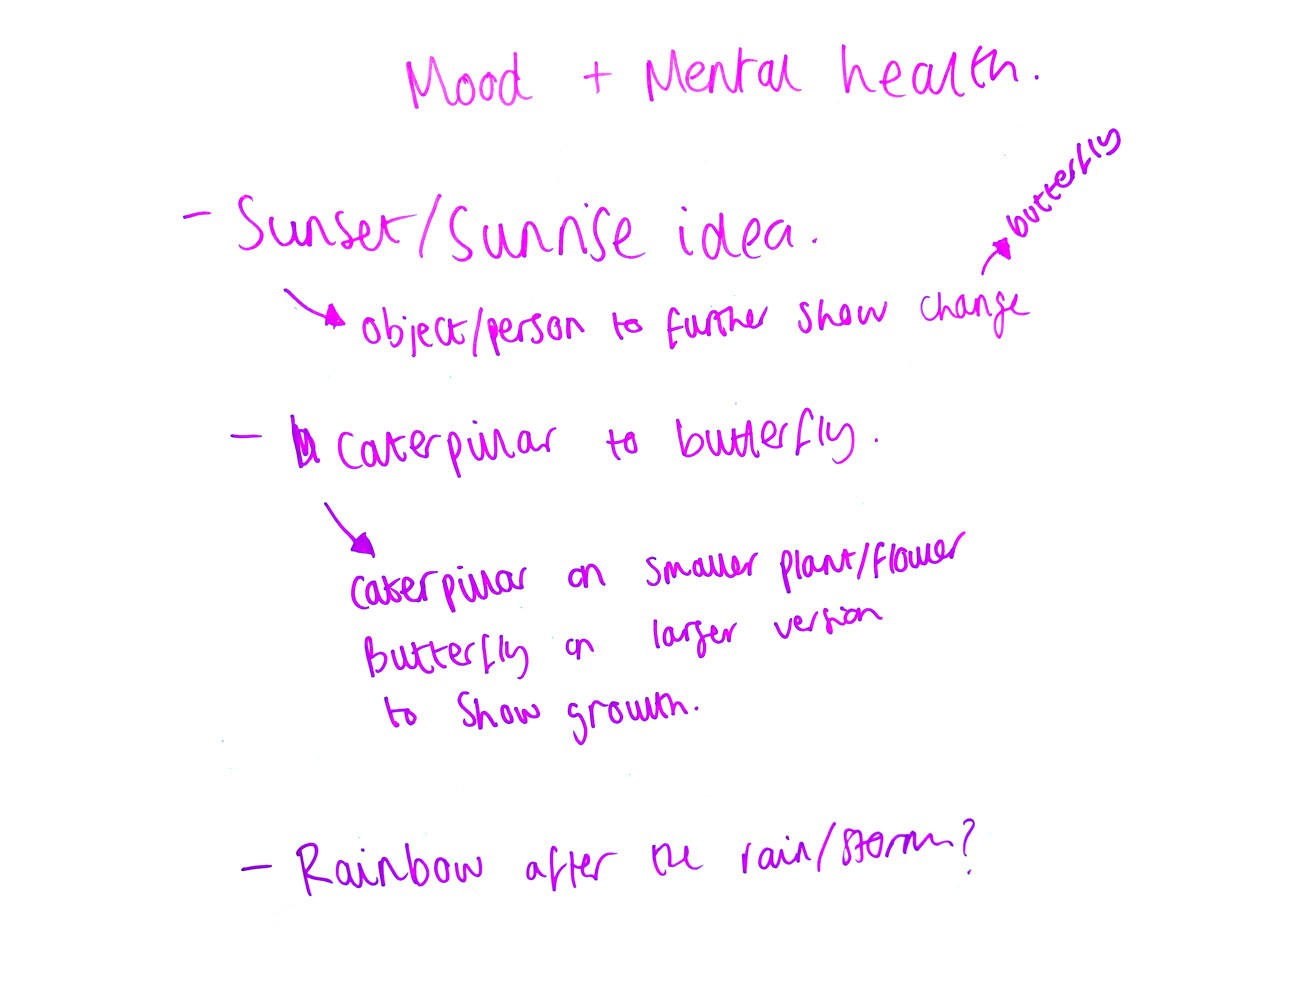 Mood + Mental health.
butterfly
- Sunset/Sunrise idea.
object/person to further show change
- caterpillar to butterfly.
caterpillar on smaller plant/flower
Butterfly on larger version
to show growth.
- Rainbow after the rain/storm?